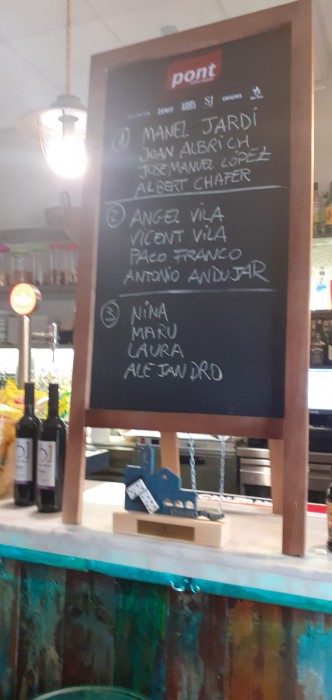 pont
① MANEL JARDI
JOAN ALBRICH
JOSE MANUEL LOPEZ
ALBERT CHAFER
② ANGEL VILA
VICENT VILA
PACO FRANCO
ANTONIO ANDUJAR
③ NINA
MARU
LAURA
ALEJANDRO